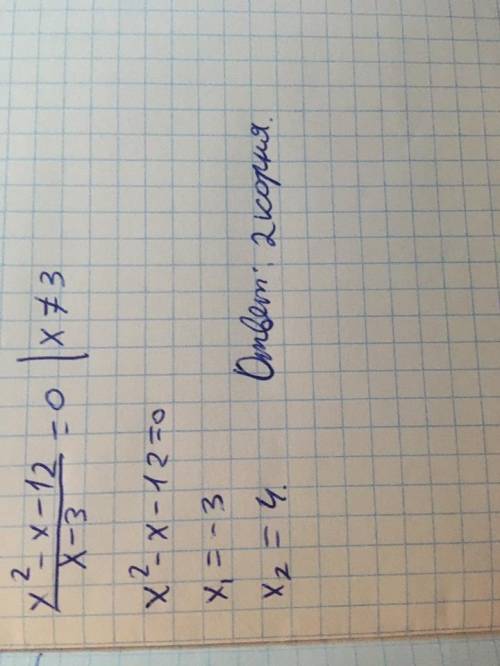 x² - x - 12 / x - 3 = 0 | x ≠ 3
x² - x - 12 = 0
x₁ = - 3
x₂ = 4. Ответ: 2 корня.